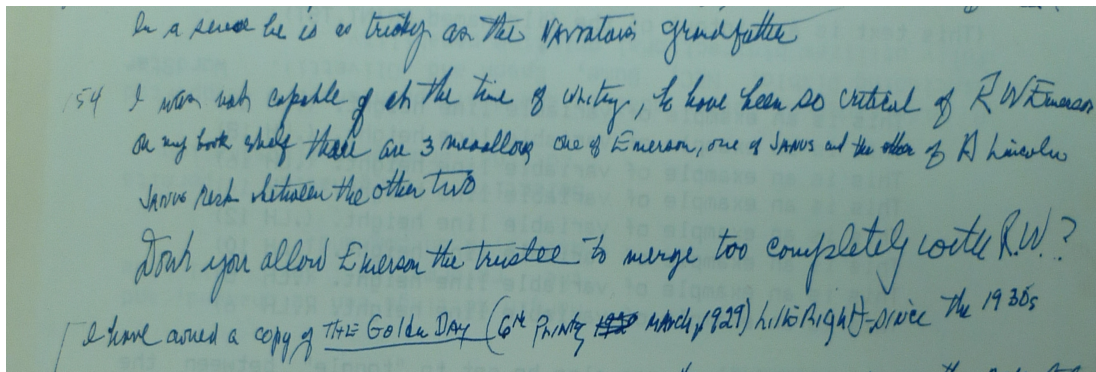 In a sense he is as tricky as the Narrator's grandfather
154 I was not capable of at the time of writing, to have been so critical of R W Emerson
On my book shelf there are 3 medallions one of Emerson, one of JANUS and the other of A Lincoln
JANUS rests between the other two
Don't you allow Emerson the trustee to merge too completely with R.W.?
I have owned a copy of THE Golden DAY (6th Printing March, 1929) since the 1930s